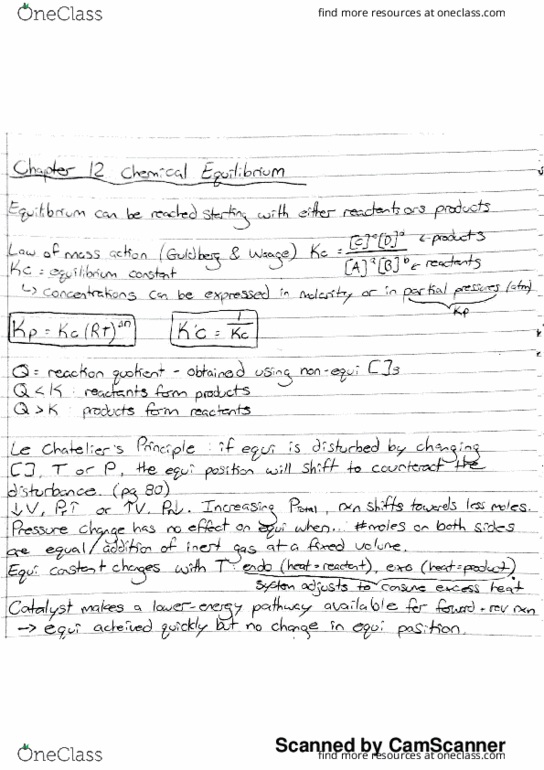 OneClass find more resources at oneclass.com
Chapter 12 Chemical Equilibrium
Equilibrium can be reached starting with either reactants or products
Law of mass action (Guldberg & Waage) Kc = [C]ᶜ[D]ᵈ ← products
[A]ᵃ[B]ᵇ ← reactants
Kc = equilibrium constant
↳ concentrations can be expressed in molarity or in partial pressures (atm)
Kp
Kp = Kc(Rt)^Δn K'c = 1/Kc
Q = reaction quotient - obtained using non-equi []s
Q < K : reactants form products
Q > K : products form reactants
Le Chatelier's Principle : if equi is disturbed by changing
[], T or P, the equi position will shift to counteract the
disturbance. (pg 80)
↓V, P↑ or ↑V, P↓. Increasing Ptotal, rxn shifts towards less moles.
Pressure change has no effect on equi when... #moles on both sides
are equal/addition of inert gas at a fixed volume.
Equi constant changes with T: endo (heat=reactant), exo (heat=product).
system adjusts to consume excess heat
Catalyst makes a lower-energy pathway available for forward + rev rxn
→ equi acheived quickly but no change in equi position.
Scanned by CamScanner
OneClass find more resources at oneclass.com